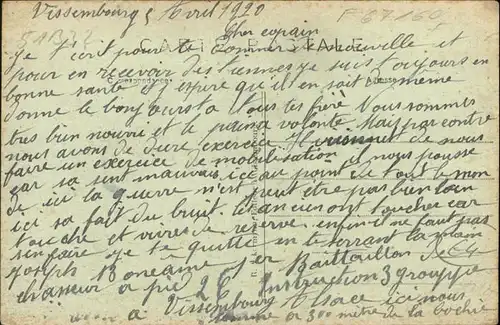 Vissembourg 5 Avril 1920
Cher copain
Je t'écrit pour te donner nouvelle et
pour en recevoir des tiennes je suis toujours en
bonne santé et j'espère qu'il en soit de même
donne le bonjour a tous tes frère Nous sommes
tres bien nourri et le pinard a volonte Mais par contre
nous avons de dure exercice Ils viennent de nous
faire un exercice de mobilisation
car sa sent mauvais ici au point de tout le monde
de ici la guerre n'est peut etre pas bien loin
ici sa fait du bruit. les ancien ont toucher car
touche et vivres de reserve enfin il ne faut pas
s'en faire je te quitte en te serrant la main
Joseph Bonéâme 1er Baittaillon
chasseur a pié 2 C. Instruction 3 grouppe
a Vissembourg Alsace ici nous
somme a 300 metre de la bochie